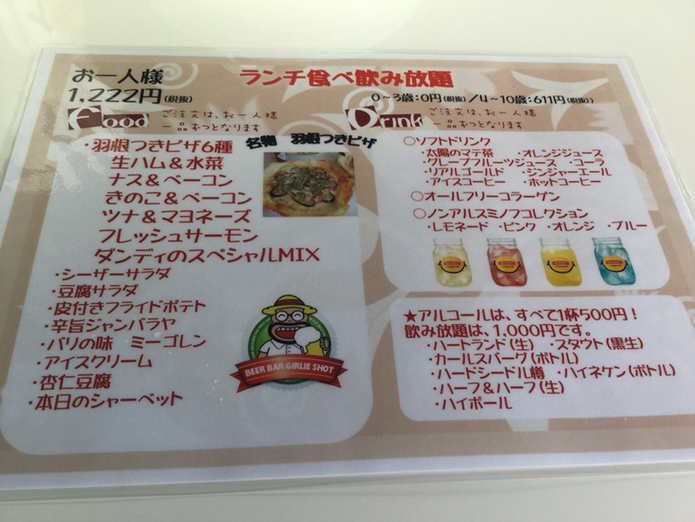 お一人様
ランチ食べ飲み放題
1,222円(税抜)
0~3歳:0円(税抜)/4~10歳:611円(税抜)
Food
ご注文は、お一人様
一品ずつとなります
Drink
ご注文は、お一人様
一品ずつとなります
・羽根つきピザ6種
名物 羽根つきピザ
生ハム&水菜
ナス&ベーコン
きのこ&ベーコン
ツナ&マヨネーズ
フレッシュサーモン
ダンディのスペシャルMIX
・シーザーサラダ
・豆腐サラダ
・皮付きフライドポテト
・辛旨ジャンバラヤ
・バリの味 ミーゴレン
・アイスクリーム
・杏仁豆腐
・本日のシャーベット
BEER BAR GIRLIE SHOT
○ソフトドリンク
・太陽のマテ茶 ・オレンジジュース
・グレープフルーツジュース ・コーラ
・リアルゴールド ・ジンジャーエール
・アイスコーヒー ・ホットコーヒー
○オールフリーコラーゲン
○ノンアルスミノフコレクション
・レモネード ・ピンク ・オレンジ ・ブルー
★アルコールは、すべて1杯500円!
飲み放題は、1,000円です。
・ハートランド(生) ・スタウト(黒生)
・カールスバーグ(ボトル)
・ハードシードル樽 ・ハイネケン(ボトル)
・ハーフ&ハーフ(生)
・ハイボール